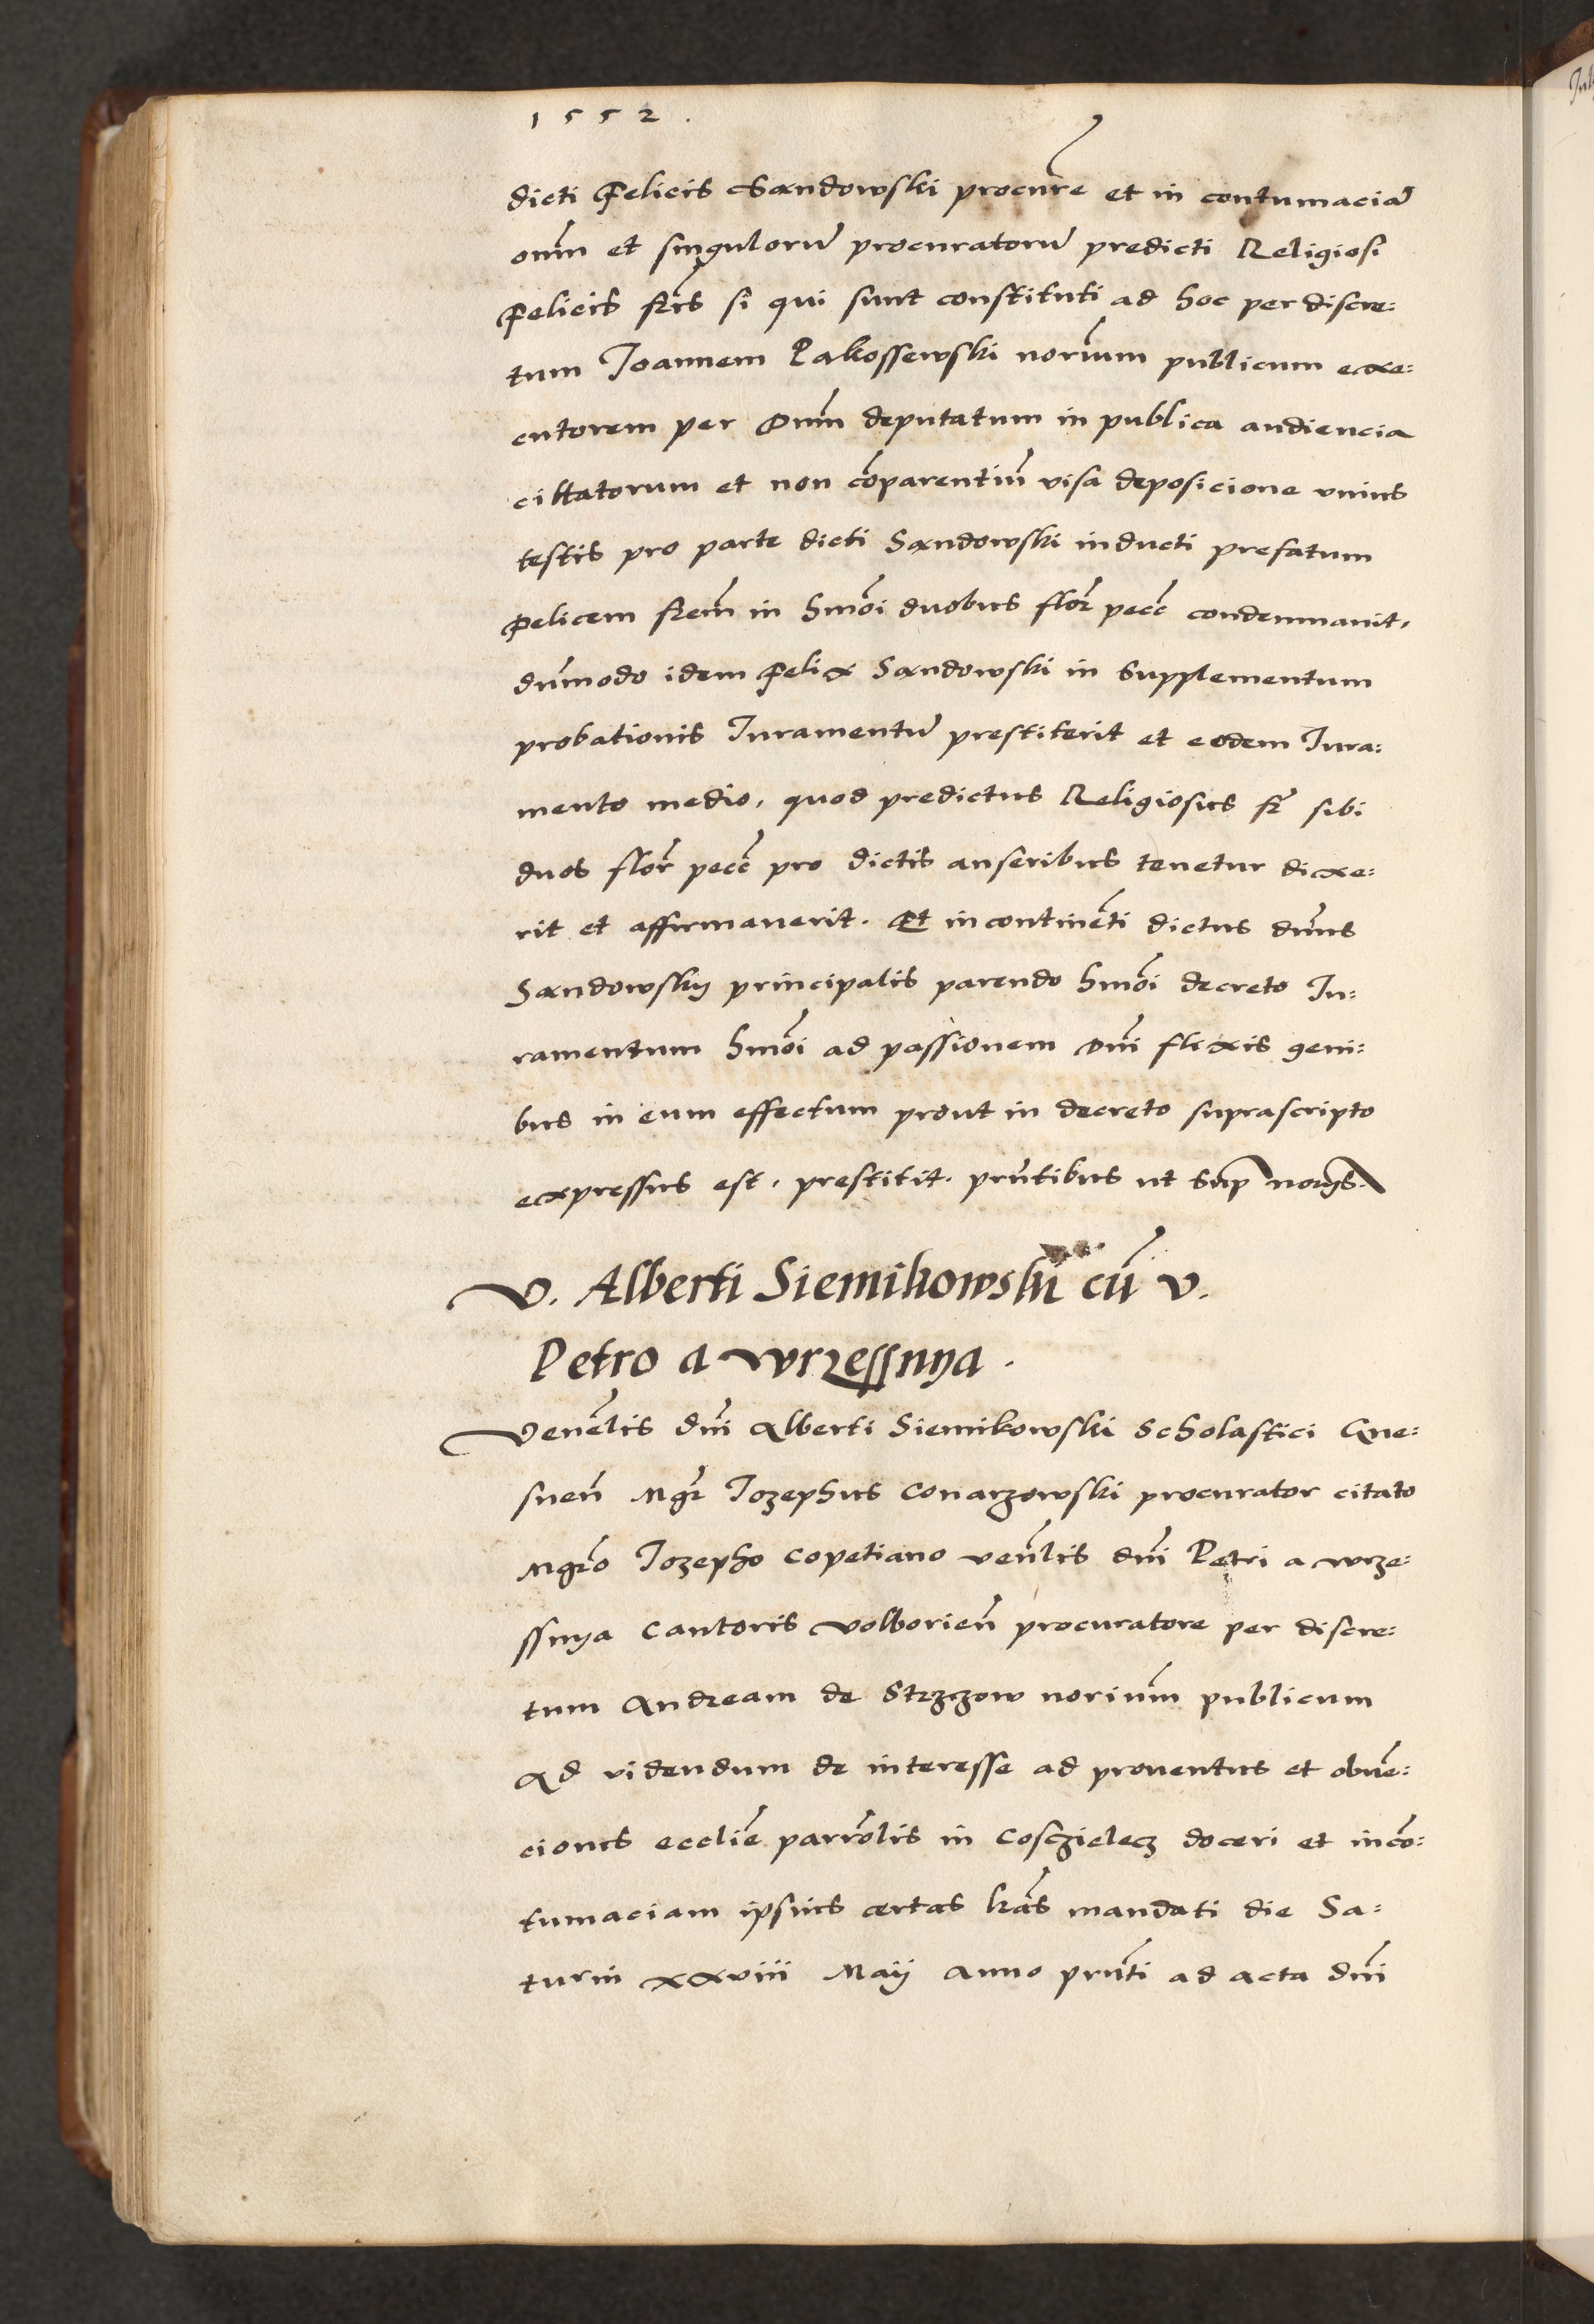 1552.
dicti Felicis Sandowski procur̃e et in contumaciã
om̃n et singulorũ procuratorũ predicti Religiosi
Felicis fr̃is si qui sunt constituti ad hoc per discre:
tum Joannem Pakossewski nor̃ium publicum exe:
cutorem per Dnm̃ deputatum in publica audiencia
cittatorum et non cõparentiũ visa deposicione vnius
testis pro parte dicti Sandowski inducti prefatum
Felicem fr̃em in hmõi duobus flor̃ pecc̃ condemnauit,
dum̃odo idem Felix Sandowski in supplementum
probationis Juramentũ prestiterit et eodem Jura:
mento medio, quod predictus Religiosus fr̃ sibi
duos flor̃ pecc̃ pro dictis anseribus tenetur dixe:
rit et affirmauerit. Et incontinẽti dictus dñus
Sandowsky principalis parendo hmõi decreto Ju:
ramentum hmõi ad passionem Dñi flexis geni:
bus in eum effectum prout in decreto suprascripto
expressus est, prestitit. prñtibus ut sup̃ nor̃ijs.
V. Alberti Siemikowski cũ v.
Petro a Wrzessnya.
Venẽlis dñi Alberti Siemikowski Scholastici Gne:
snen̄ Mgr̃ Jozephus Conarzowski procurator citato
Mgr̃o Jozepho Copetiano ven̄lis dñi Petri a Wrze:
ssnya Cantoris Volborien̄ procuratore per discre:
tum Andream de Strzgow norium̃ publicum
Ad videndum de interesse ad prouentus et obuẽ:
ciones eccliẽ parrõlis in Cosczielecz doceri et incõ:
tumaciam ipsius certas lr̃as mandati die Sa:
turni xxviii Maij Anno prñti ad acta dñi